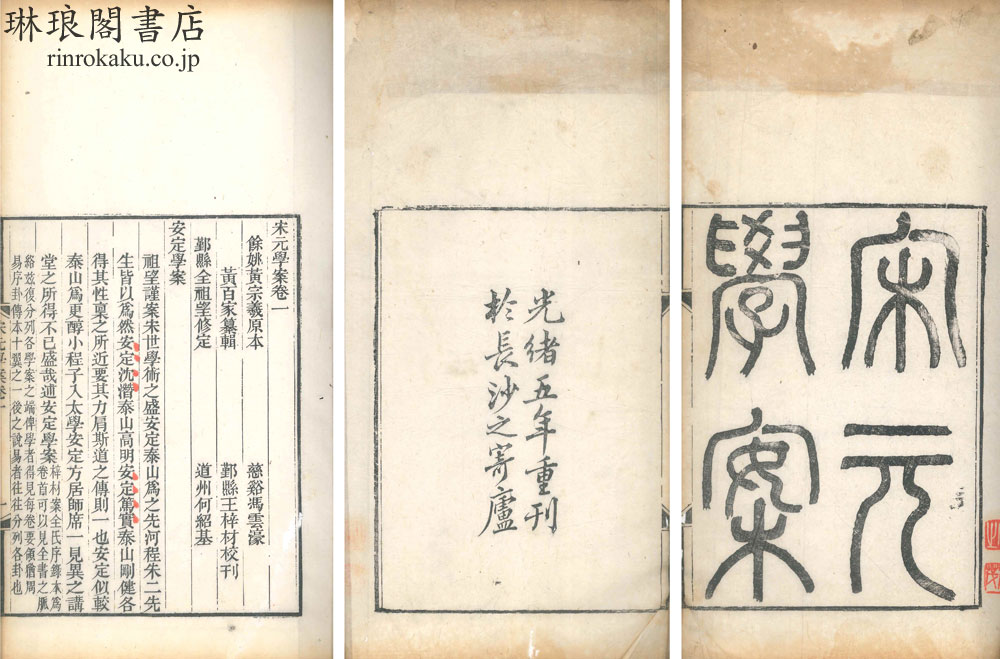 琳琅閣書店
rinrokaku.co.jp
宋元
學案
光緒五年重刊
於長沙之寄廬
宋元學案卷一
餘姚黃宗羲原本 慈谿馮雲濠
黃百家纂輯 鄞縣王梓材校刊
鄞縣全祖望修定 道州何紹基
安定學案
祖望謹案宋世學術之盛安定泰山爲之先河程朱二先
生皆以爲然安定沈潛泰山高明安定篤實泰山剛健各
得其性稟之所近要其力肩斯道之傳則一也安定似較
泰山爲更醇小程子入太學安定方居師席一見異之講
堂之所得不已盛哉述安定學案 梓材案全氏序錄本爲
卷首可以見全書之脈
絡茲復分列各學案之端俾學者得見每卷要領猶周
易序卦傳本十翼之一後之說易者往往分列各卦也
宋元學案卷一
一